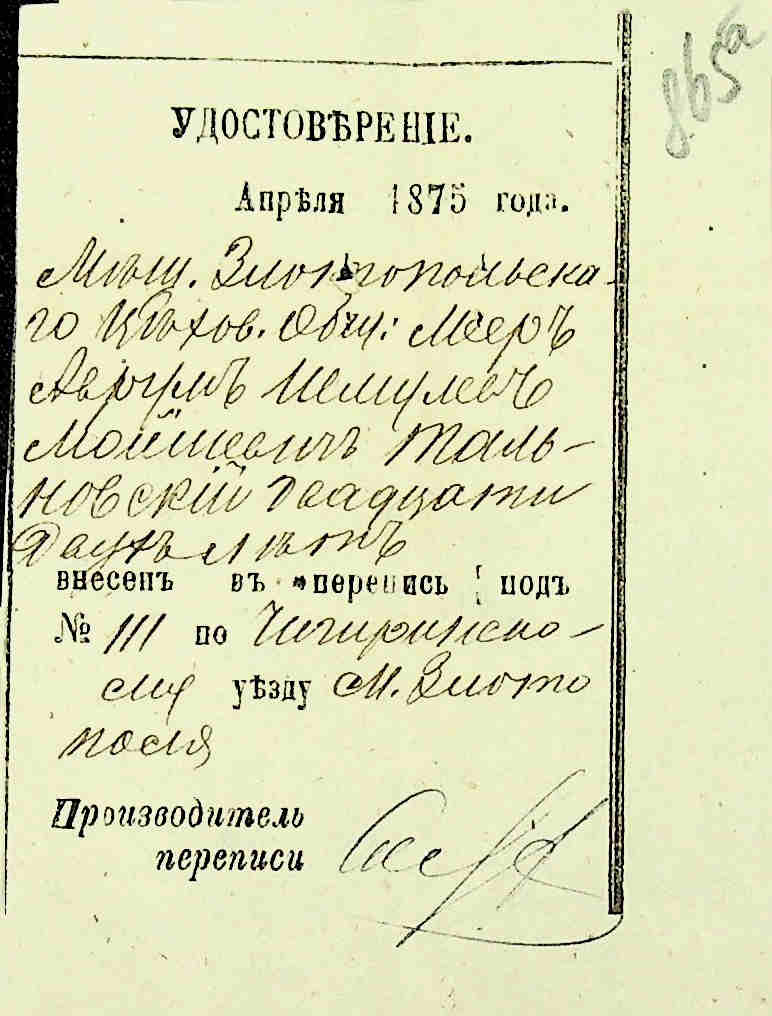 865а
УДОСТОВѢРЕНІЕ.
Апрѣля 1875 года.
Мѣщ. Златопольска-
го Цѣхов. Общ: Мееръ
Аврумъ
Мойшевичъ Таль-
новскій двадцати
двухъ лѣтъ
внесенъ въ перепись подъ
№ 111 по Чигиринско-
му уѣзду М. Злато
поля
Производитель
переписи